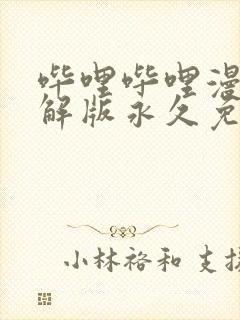 哔哩哔哩漫
解版永久免
小林裕和 支援